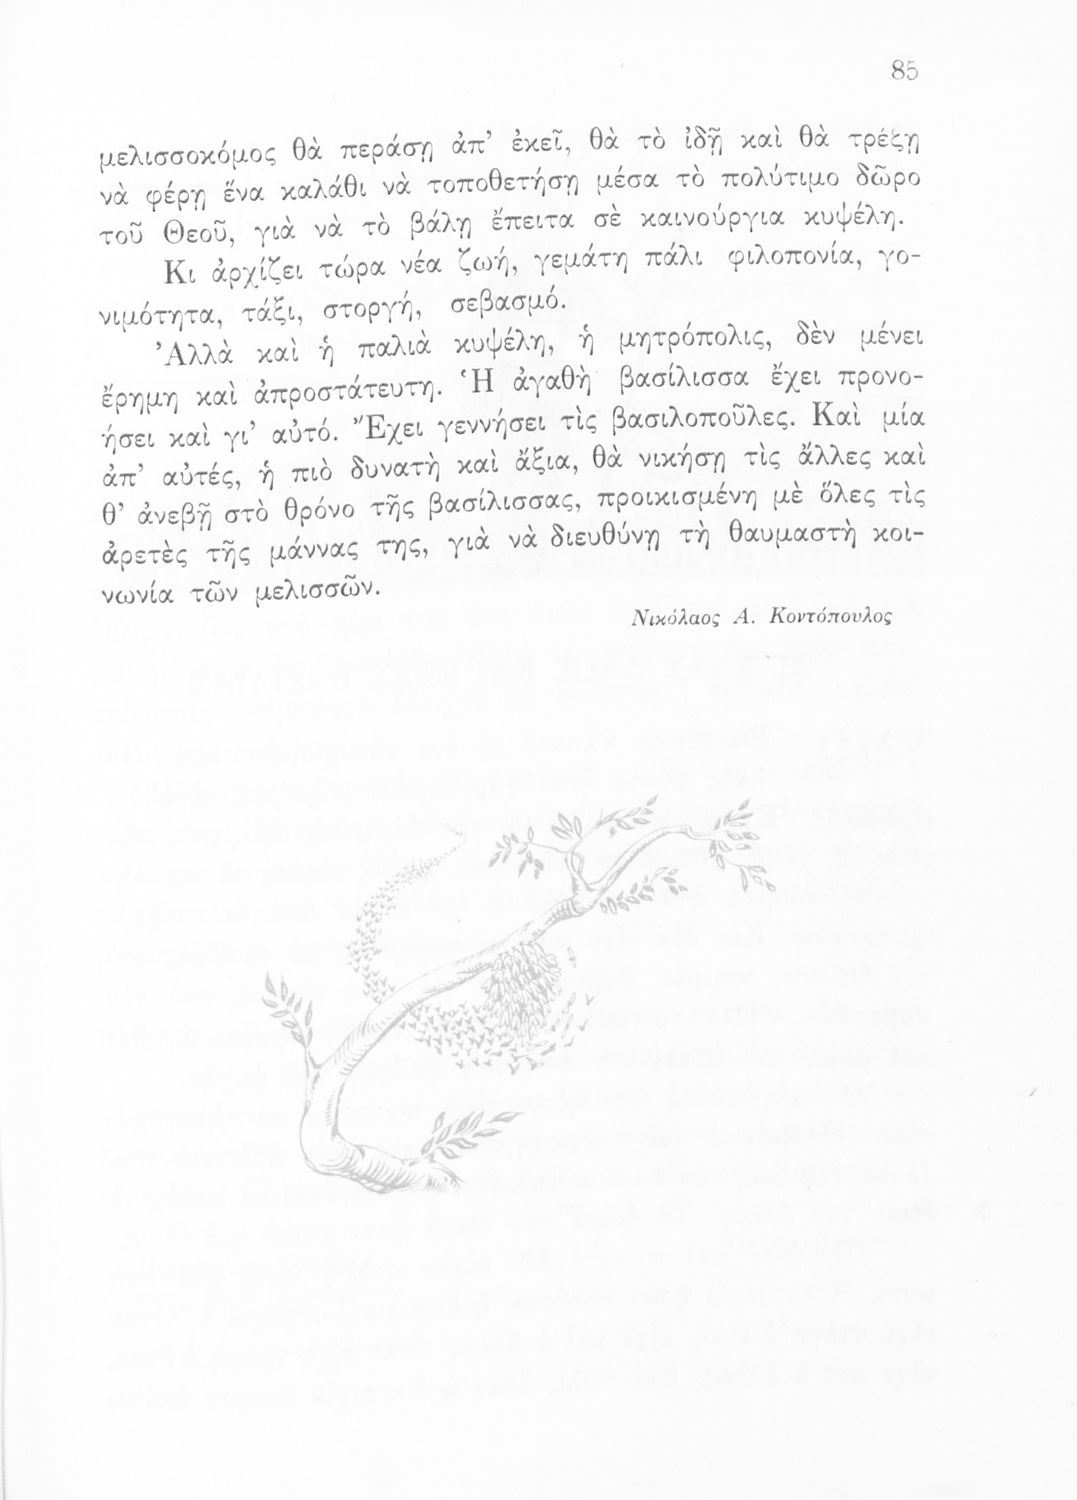 85
μελισσοκόμος θὰ περάσῃ ἀπ’ ἐκεῖ, θὰ τὸ ἰδῇ καὶ θὰ τρέξῃ
νὰ φέρῃ ἕνα καλάθι νὰ τοποθετήσῃ μέσα τὸ πολύτιμο δῶρο
τοῦ Θεοῦ, γιὰ νὰ τὸ βάλῃ ἔπειτα σὲ καινούργια κυψέλη.
Κι ἀρχίζει τώρα νέα ζωή, γεμάτη πάλι φιλοπονία, γο-
νιμότητα, τάξι, στοργή, σεβασμό.
Ἀλλὰ καὶ ἡ παλιὰ κυψέλη, ἡ μητρόπολις, δὲν μένει
ἔρημη καὶ ἀπροστάτευτη. Ἡ ἀγαθὴ βασίλισσα ἔχει προνο-
ήσει καὶ γι’ αὐτό. Ἔχει γεννήσει τὶς βασιλοποῦλες. Καὶ μία
ἀπ’ αὐτές, ἡ πιὸ δυνατὴ καὶ ἄξια, θὰ νικήσῃ τὶς ἄλλες καὶ
θ’ ἀνεβῇ στὸ θρόνο τῆς βασίλισσας, προικισμένη μὲ ὅλες τὶς
ἀρετὲς τῆς μάννας της, γιὰ νὰ διευθύνῃ τὴ θαυμαστὴ κοι-
νωνία τῶν μελισσῶν.
Νικόλαος Α. Κοντόπουλος